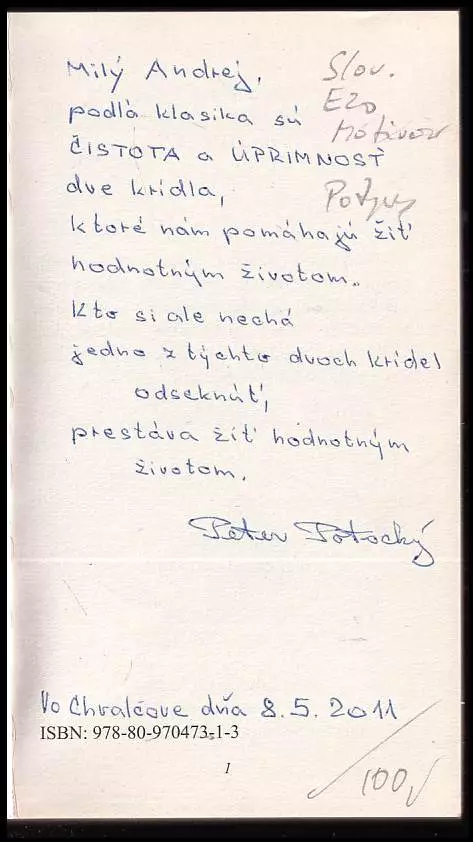 Milý Andrej,
podľa klasika sú
ČISTOTA a ÚPRIMNOSŤ
dve krídla,
ktoré nám pomáhajú žiť
hodnotným životom.
Kto si ale nechá
jedno z týchto dvoch krídel
odseknúť,
prestáva žiť hodnotným
životom.
Peter Potocký
Slov.
Ezo
Vo Chvalčove dňa 8.5.2011
ISBN: 978-80-970473-1-3
1
100,